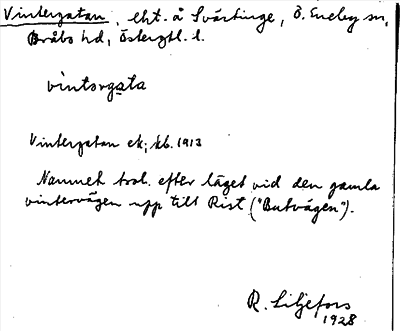 Vintergatan, lht. å Svärtinge, Ö. Eneby sn,
Bråbo hd, Östergtl. l.
vìntərgata
Vintergatan ek, kb. 1913
Namnet trol. efter läget vid den gamla
vintervägen upp till Rist ("Butvägen").
R. Liljefors
1928